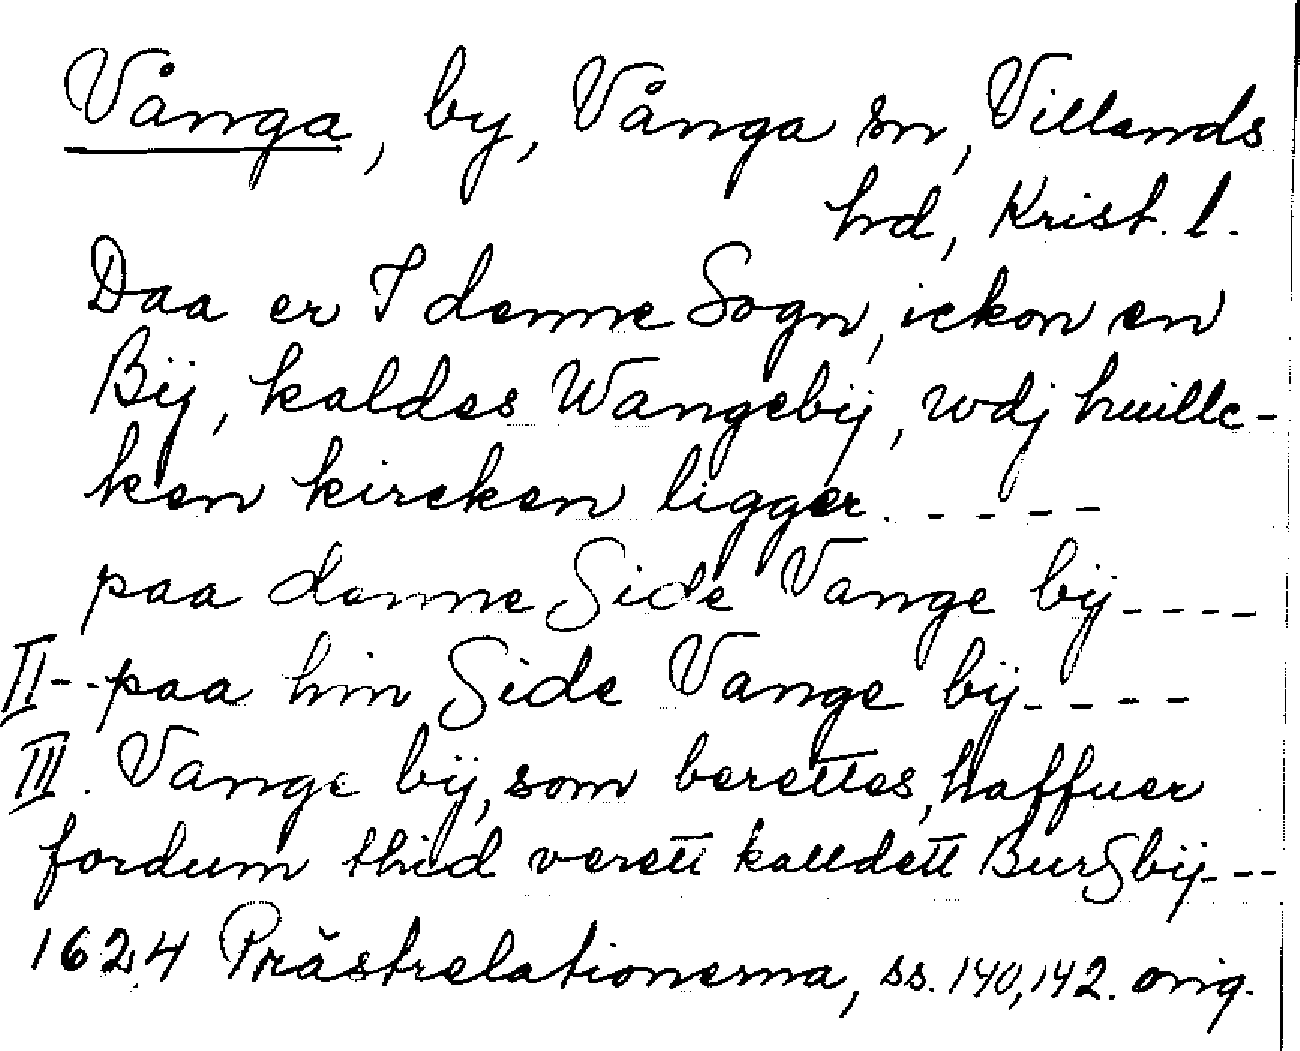 Vånga, by, Vånga sn, Villands
hd, Krist. l.
Daa er I denne Sogn, ickon en
Bÿ, kaldes Wangebÿ, wdj huille-
ken kircken ligger. - - - - -
paa denne Side Vange bÿ - - - -
II - - paa hin Side Vange bÿ - - - -
III. Vange bÿ, som berettes, haffuer
fordum thid verett kalldett Burgbÿ - - -
1624 Prästrelationerna, ss. 140, 142. orig.